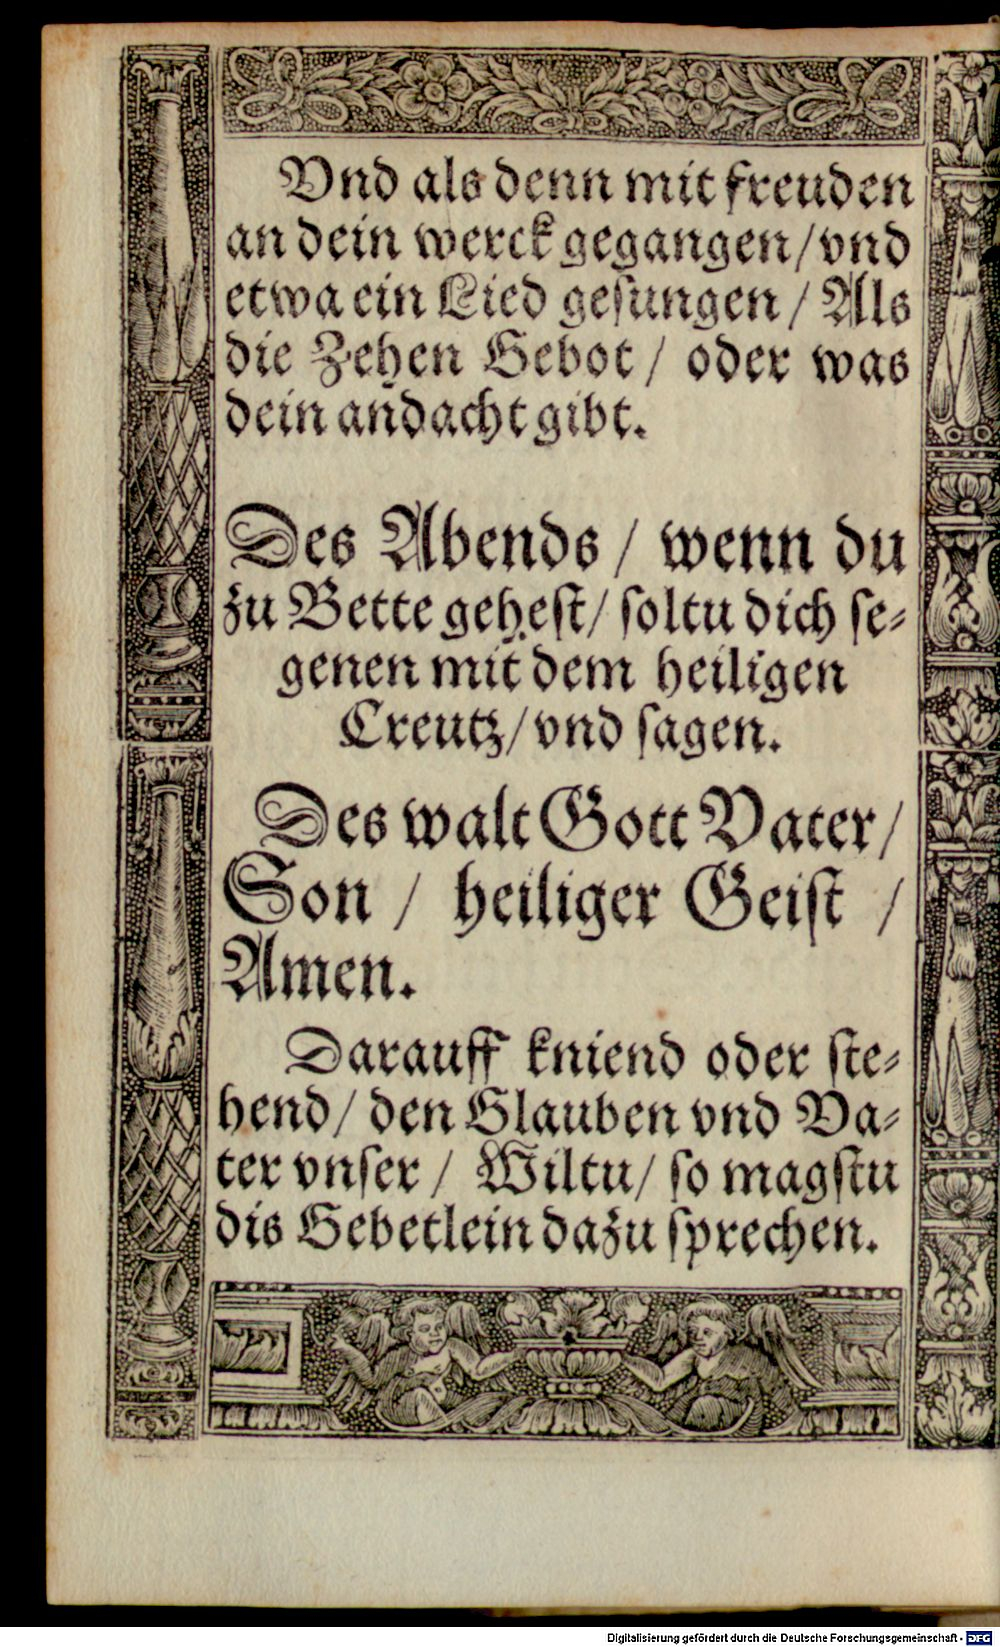 Vnd als denn mit freuden
an dein werck gegangen/ vnd
etwa ein Lied gesungen / Als
die Zehen Gebot / oder was
dein andacht gibt.
Des Abends / wenn du
zu Bette gehest/ soltu dich se-
genen mit dem heiligen
Creutz/ vnd sagen.
Des walt Gott Vater/
Son / heiliger Geist /
Amen.
Darauff kniend oder ste-
hend/ den Glauben vnd Va-
ter vnser / Wiltu/ so magstu
dis Gebetlein dazu sprechen.
Digitalisierung gefördert durch die Deutsche Forschungsgemeinschaft - DFG